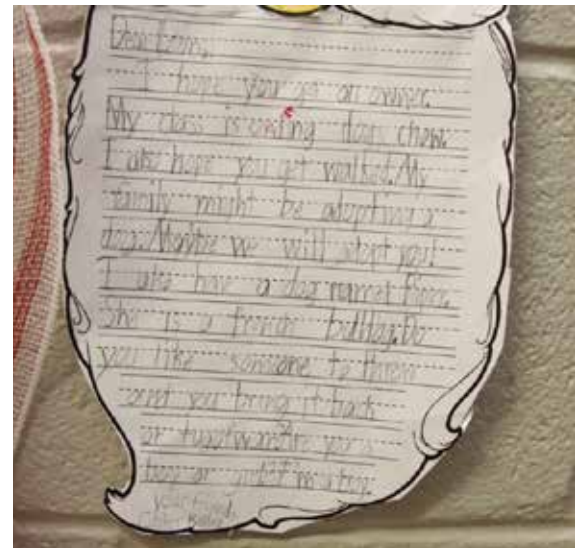 Dear
I hope you get an owner.
My class is ending dogs chow.
I also hope you get walked. My
family might be adopting a
dog. Maybe we will adopt you!
I also have a dog namet Piper.
She is a french bulldog. Do
you like someone to throw
and you bring it back
or
boy or
your friend,